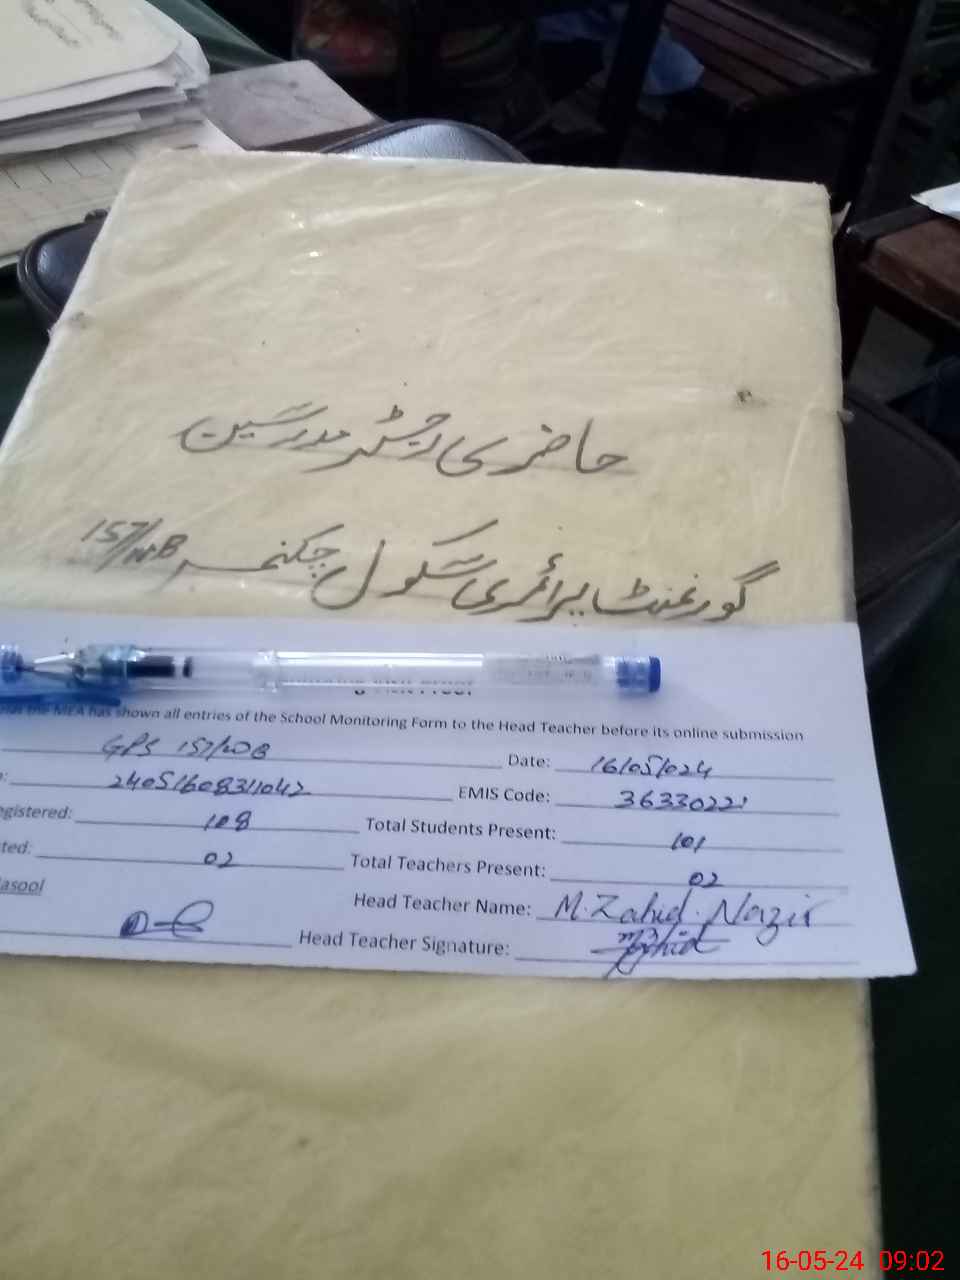 حاضری رجسٹر مدرسین
گورنمنٹ پرائمری سکول چکنمبر 157/NB
Visit Proof
the MEA has shown all entries of the School Monitoring Form to the Head Teacher before its online submission
GPS 157/NB Date: 16/05/024
EMIS Code: 36330221
egistered: 108 Total Students Present: 101
ted: 02 Total Teachers Present: 02
asool Head Teacher Name: M. Zahid Nazir
Head Teacher Signature:
16-05-24 09:02